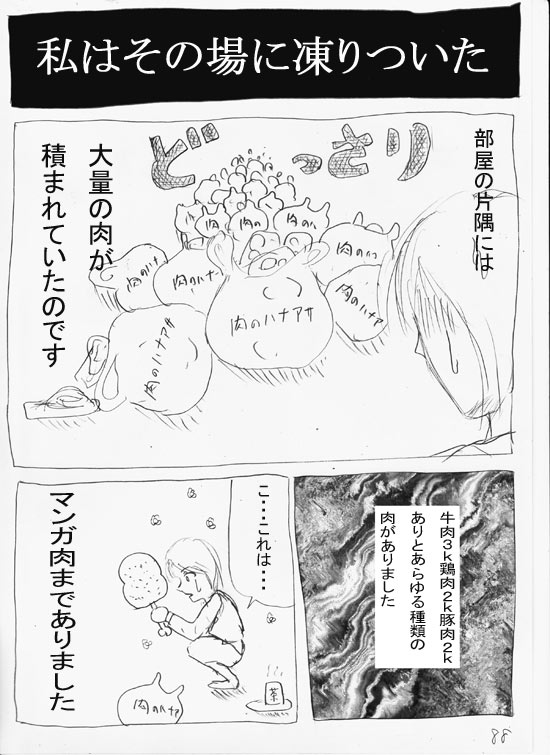 私はその場に凍りついた
部屋の片隅には
どっさり
大量の肉が
積まれていたのです
肉のハナ
肉の
肉のハ
肉のハナ
肉のハナ
肉のハナア
肉のハナアサ
肉のハナアサ
牛肉3k鶏肉2k豚肉2k
ありとあらゆる種類の
肉がありました
こ…これは…
マンガ肉までありました
茶
肉のハナア
88